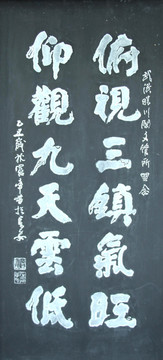 武漢晴川閣文管所留念
俯視三鎮氣旺
仰觀九天雲低
乙丑歲